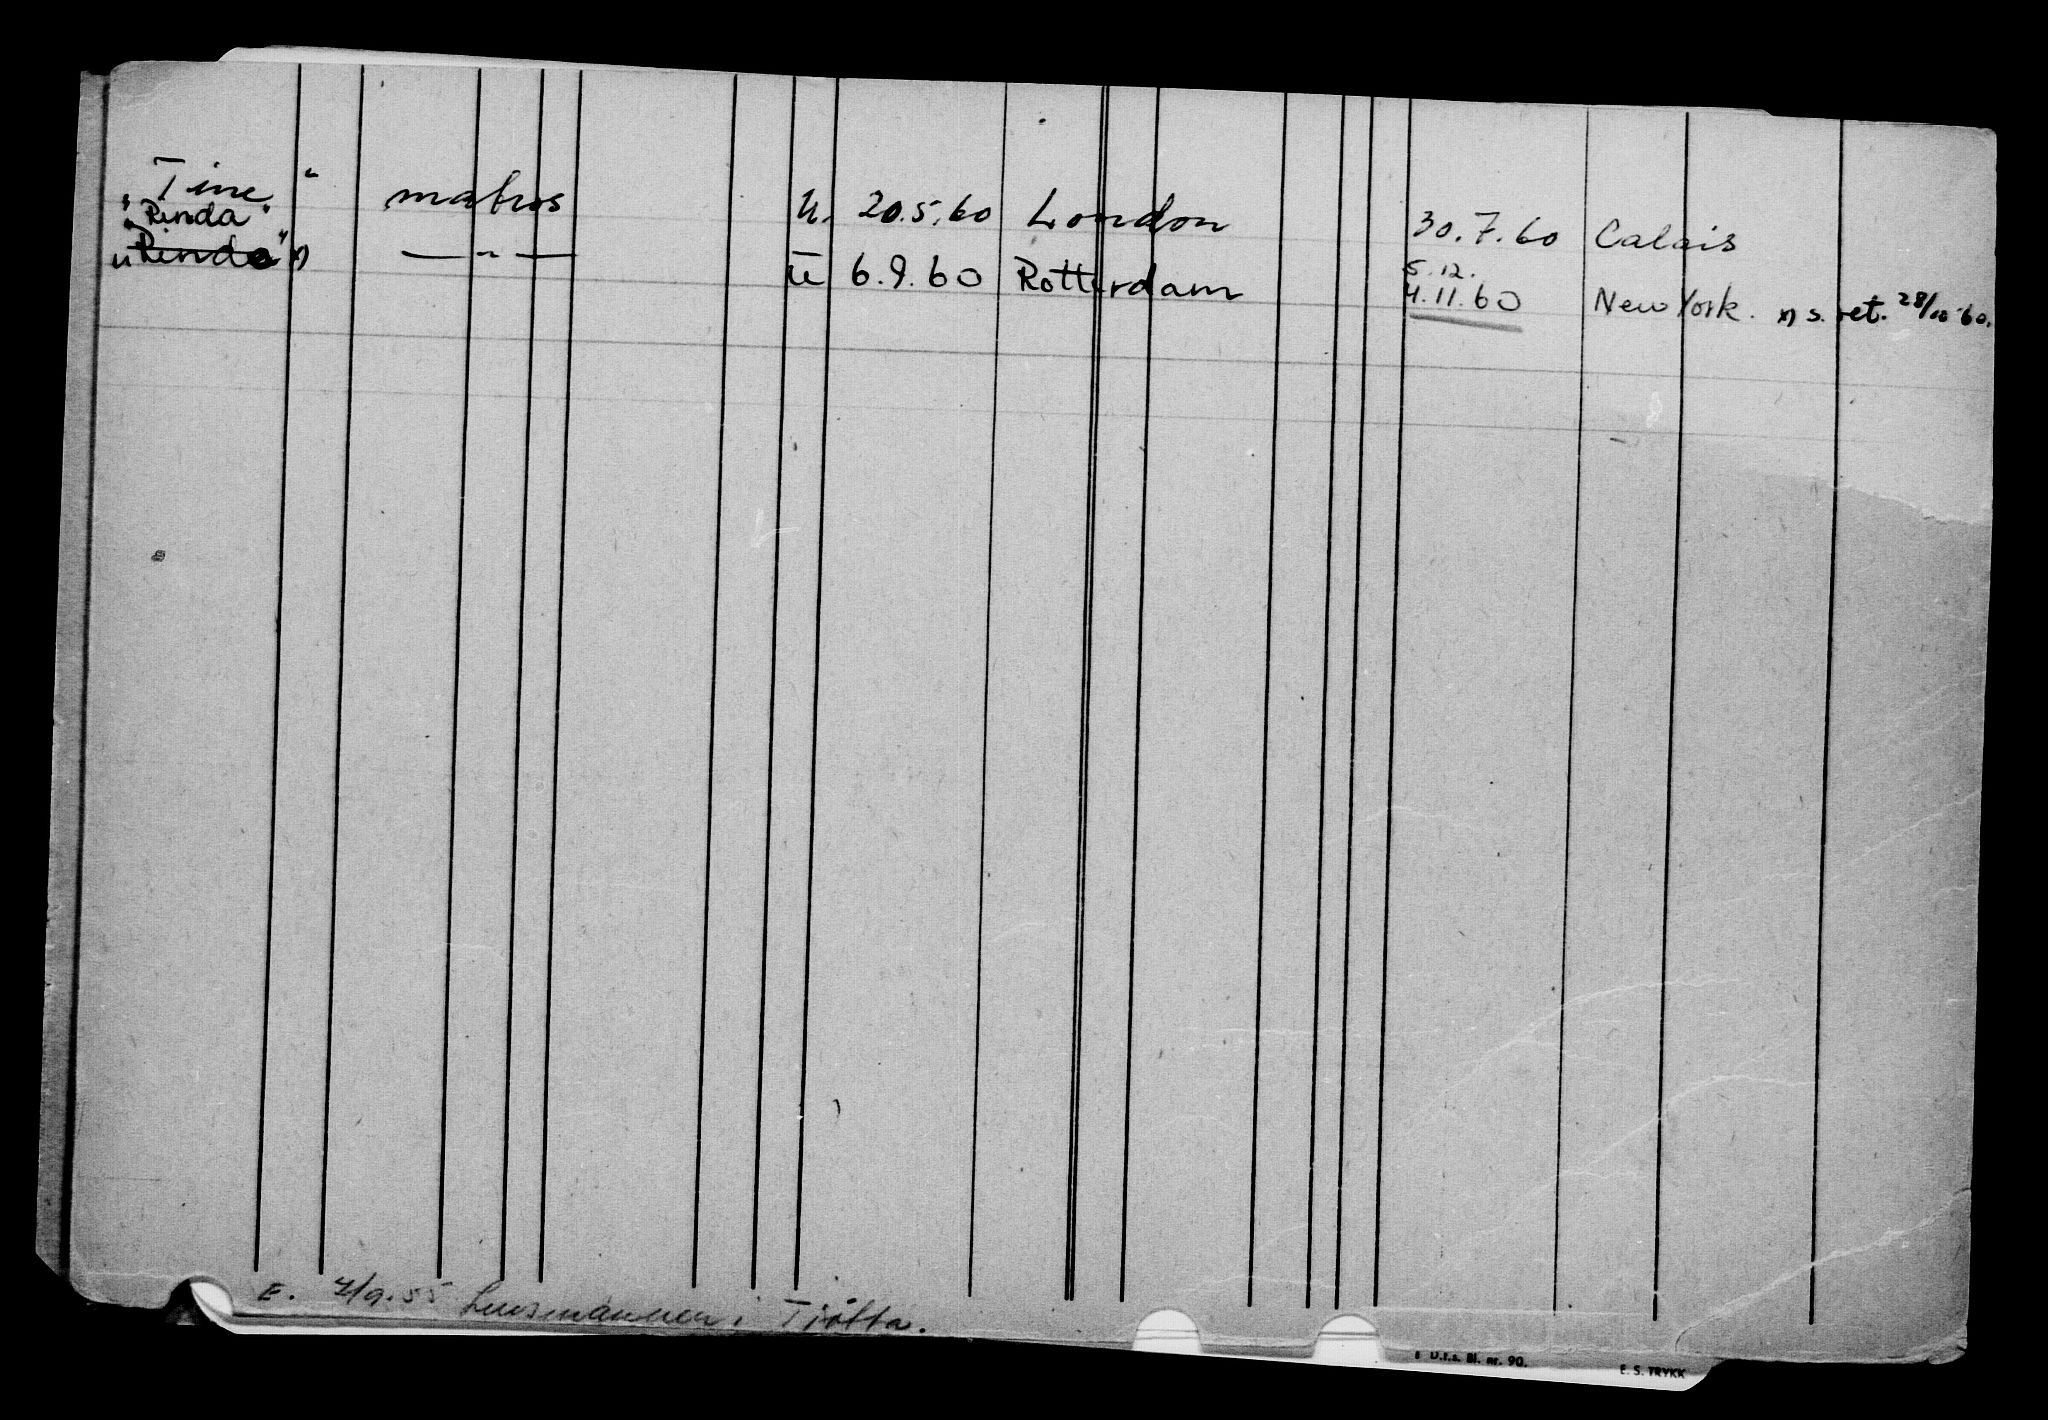 "Tine" matros u. 20.5.60 London 30.7.60 Calais
"Rinda"
"Rinda" x) — " — u 6.9.60 Rotterdam 4.11.60 New York. x) s. ret. 28/10-60.
5.12.
E. 7/9.55 Lensmannen i Tjøtta.
D.f.s. Bl. nr. 90.
E. S. TRYKK